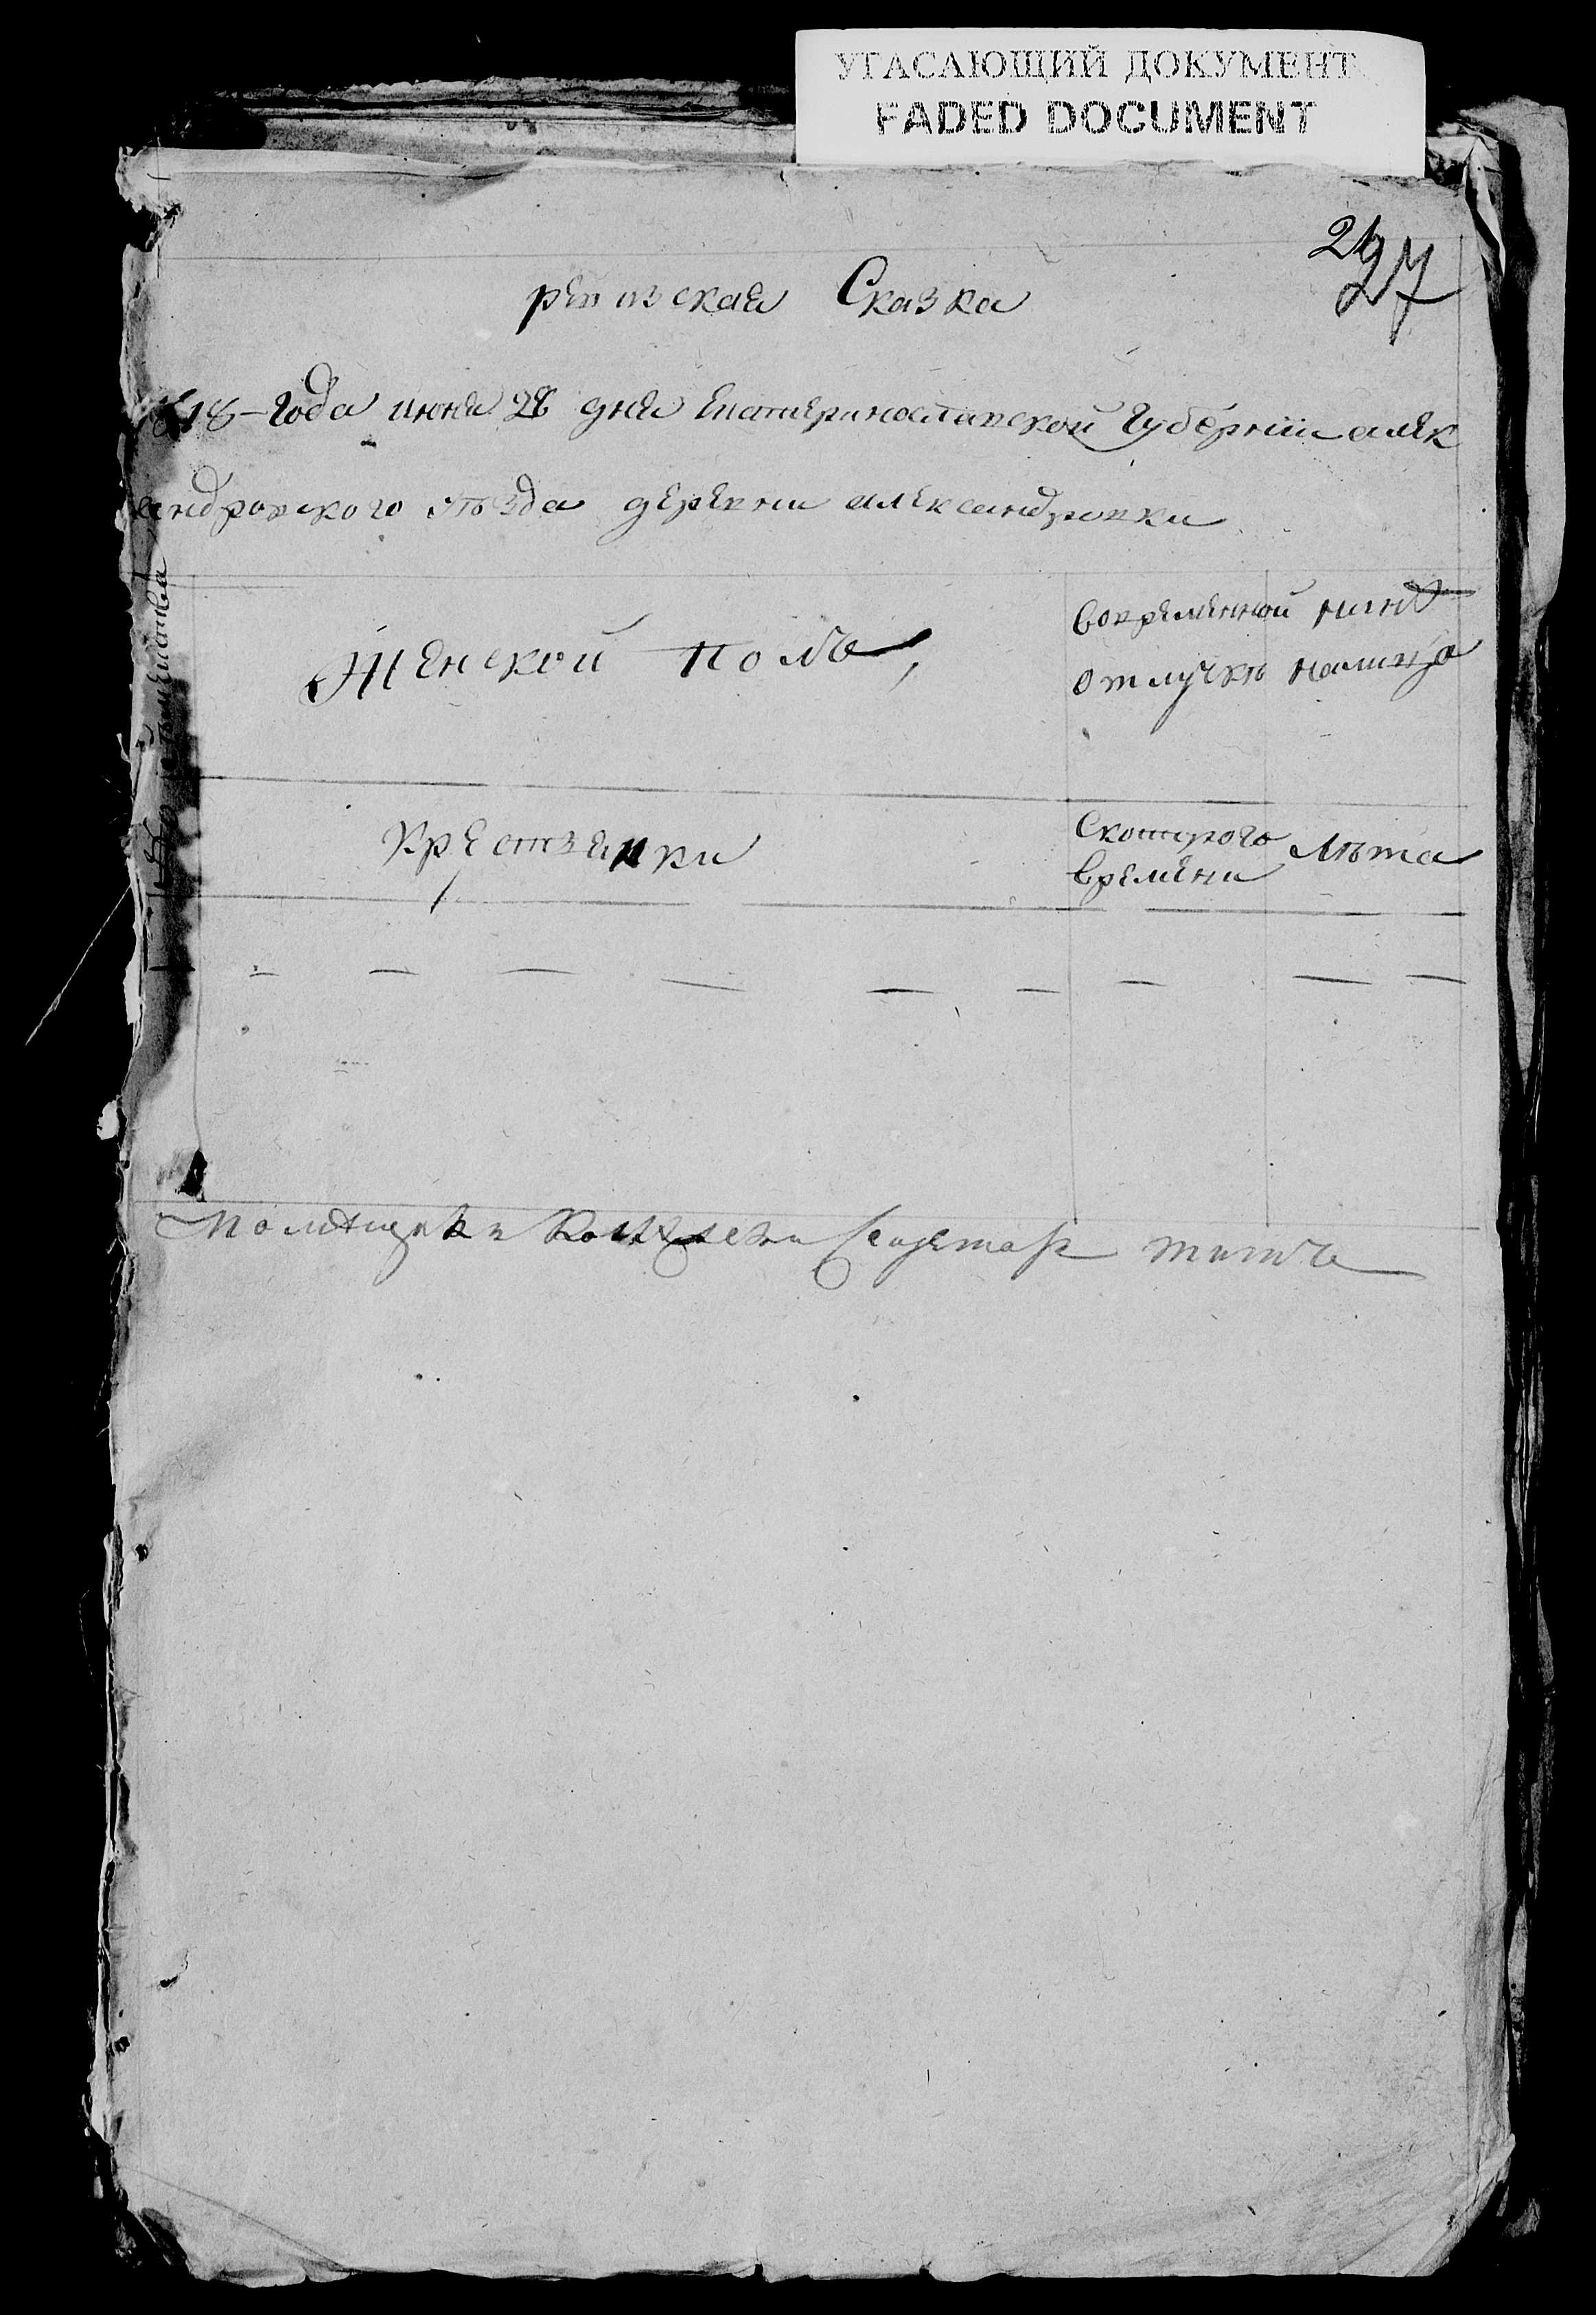 УГАСАЮЩИЙ ДОКУМЕНТ
FADED DOCUMENT
27
ревизская Сказка
1818-года июня 28 дня Екатеринославской Губернии алек
андровского уѣзда деревни александровки
Женской полъ,
Вовременной
отлучкѣ
нынѣ
налицо
Крестьянки
Скоторого
времени
Лѣта
— — — — — — — — —
Помещик Секретарь титъ